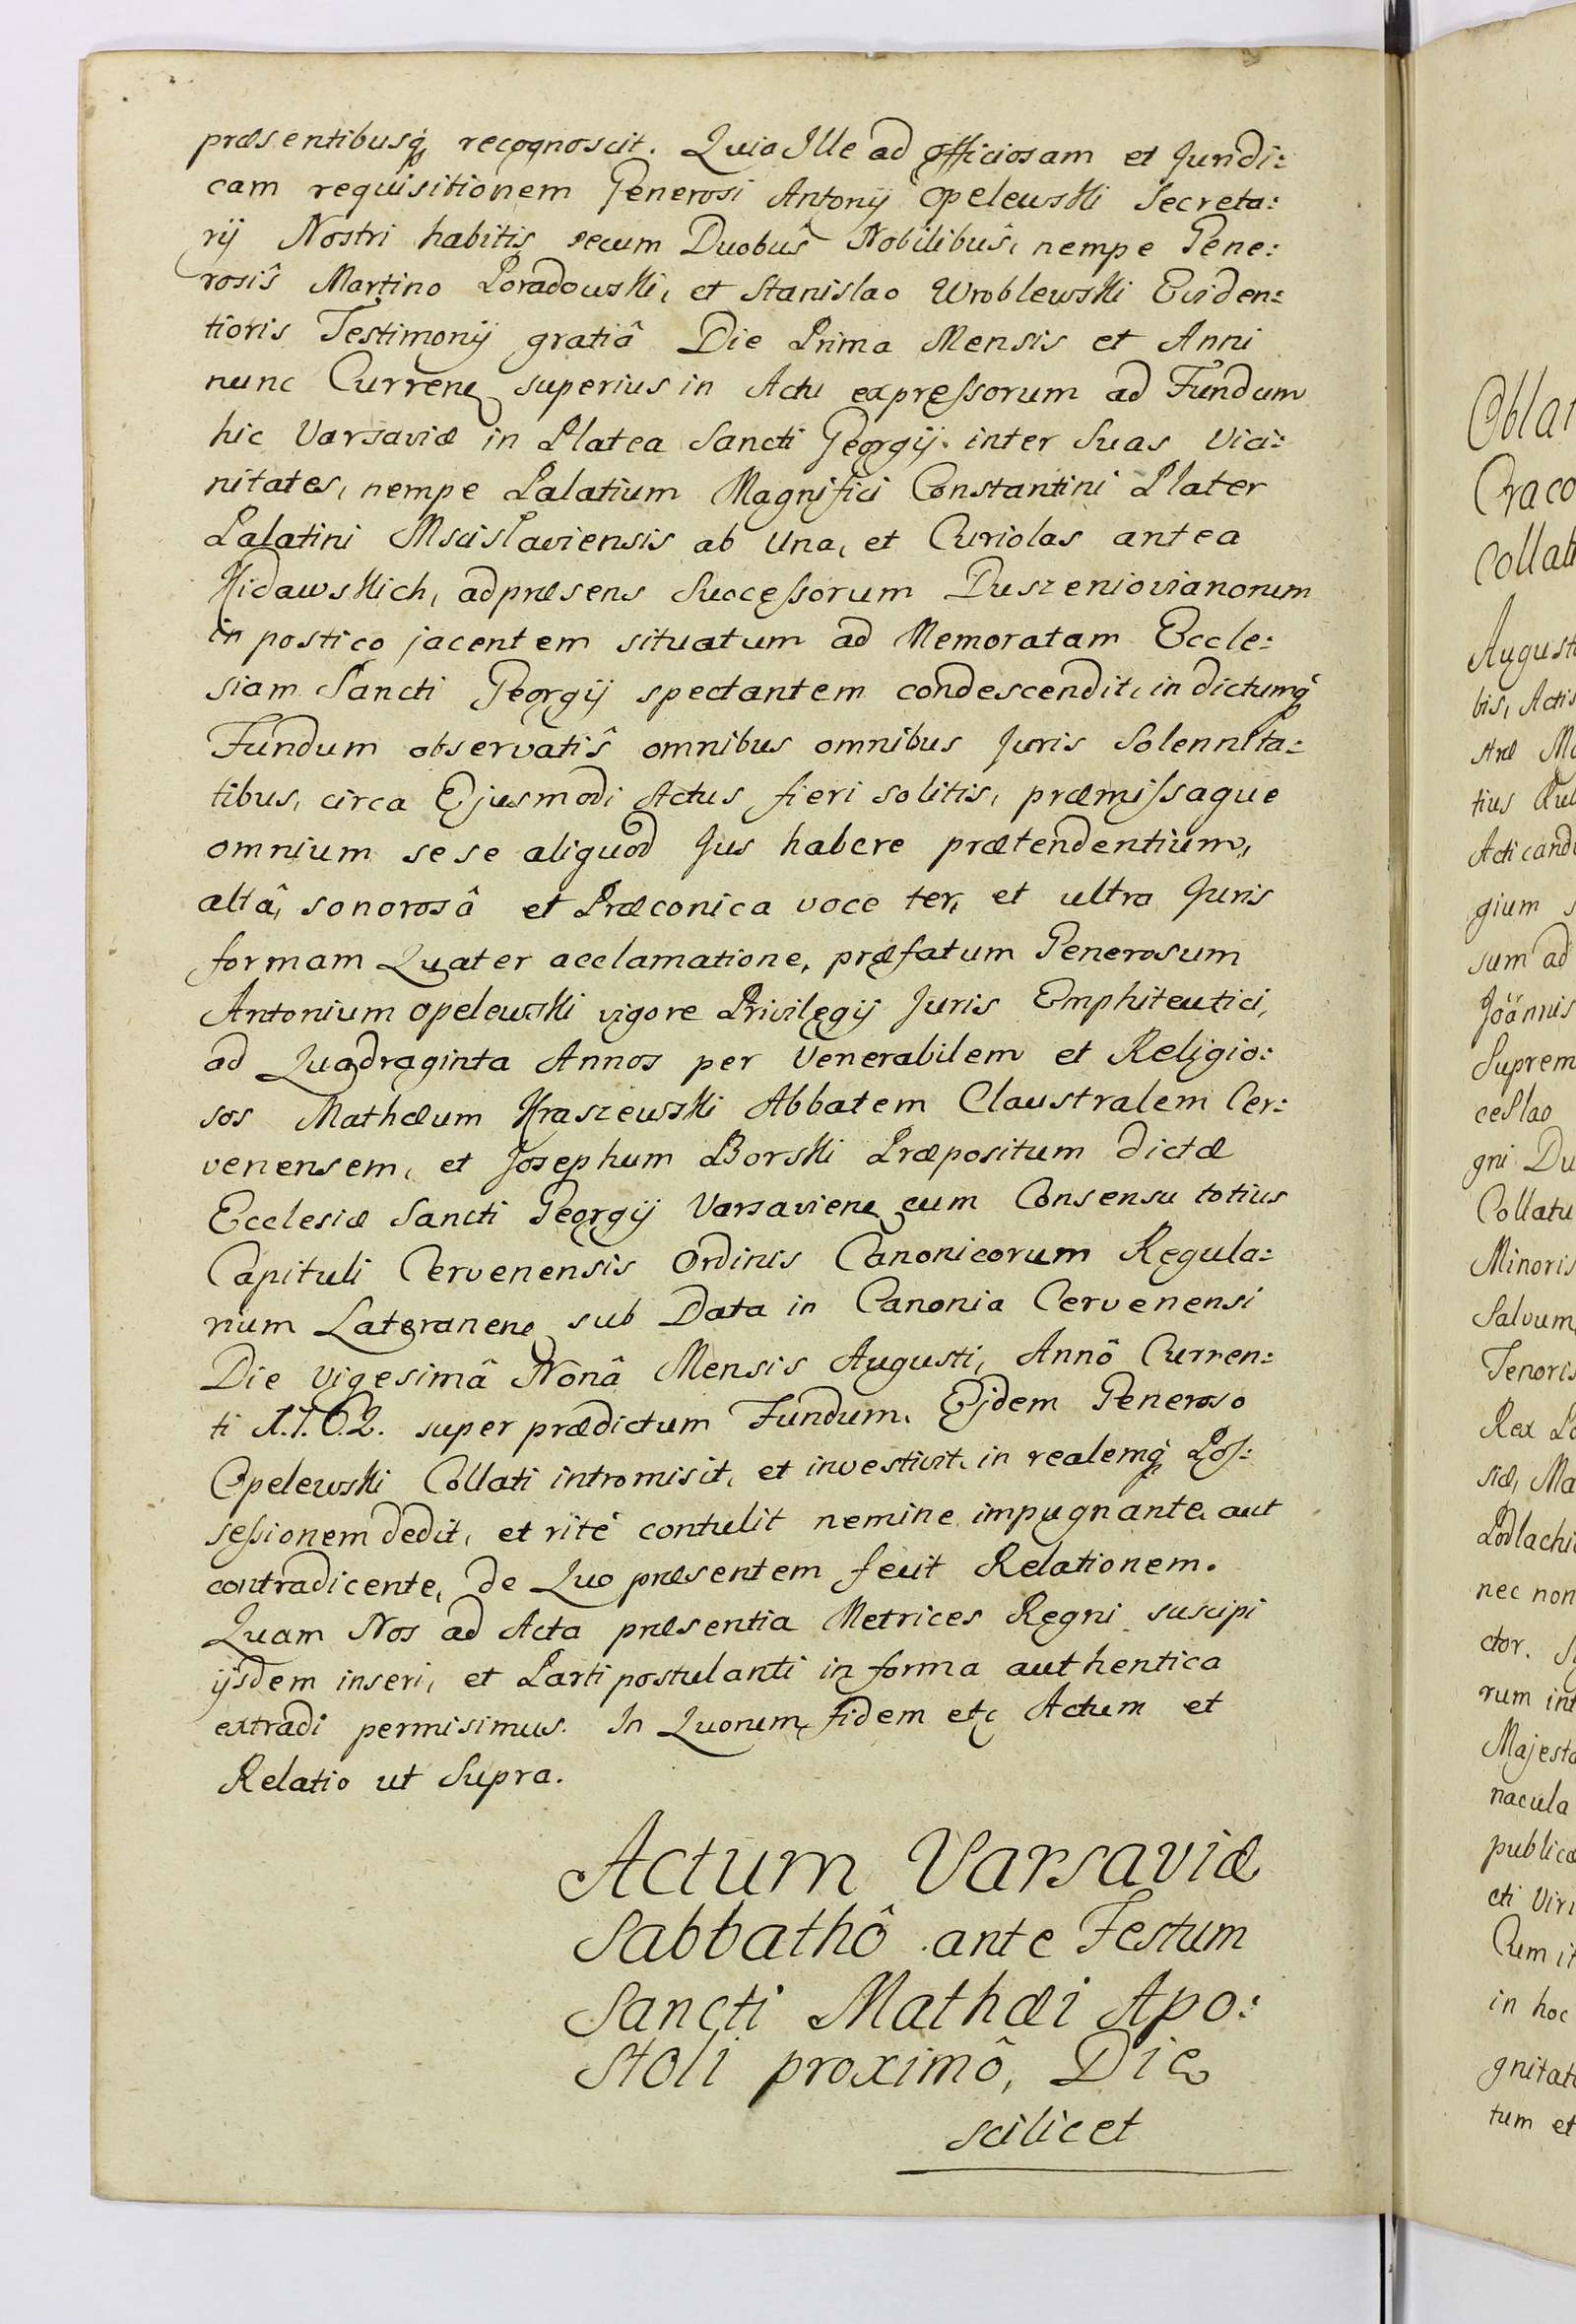 præsentibusq́ recognoscit. Quia Ille ad officiosam et Juridi:
cam requisitionem Generosi Antonij Opelewski Secreta:
rij Nostri habitis secum Duobuŝ Nobilibuŝ, nempe Gene:
rosiŝ Martino Poradowski, et Stanislao Wroblewski Eviden:
tioris Testimonij gratiâ Die Prima Mensis et Anni
nunc Curreñ superius in Actu expressorum ad Fundum
hic Varsaviæ in Platea Sancti Georgij inter Suas Vici:
nitates, nempe Palatium Magnifici Constantini Plater
Palatini Mscislaviensis ab Una, et Curiolas antea
Kidawskich, adpræsens Successorum Duszeniovianorum
in postico jacentem situatum ad Memoratam Eccle:
siam Sancti Georgij spectantem condescendit, in dictumq́
Fundum observatiŝ omnibus omnibus Juris Solennita:
tibus, circa Ejusmodi Actus fieri solitis, præmissaque
omnium sese aliquod Jus habere prætendentium,
altâ, sonorosâ et Præconica voce ter, et ultra Juris
formam Quater acclamatione, præfatum Generosum
Antonium Opelewski vigore Privilegij Juris Emphiteutici,
ad Quadraginta Annos per Venerabilem et Religio:
sos Mathæum Kraszewski Abbatem Claustralem Cer:
venensem, et Josephum Borski Præpositum dictæ
Ecclesiæ Sancti Georgij Varsavieñ cum Consensu totius
Capituli Cervenensis Ordinis Canonicorum Regula:
rium Lateraneñ sub Data in Canonia Cervenensi
Die vigesimâ Nonâ Mensis Augusti, Annô Curren:
ti 1.7.6.2. super prædictum Fundum, Ejdem Generoso
Opelewski Collati intromisit, et investivit, in realemq́ Pos:
sessionem dedit, et rité contulit nemine impugnante, aut
contradicente, de Quo præsentem fecit Relationem.
Quam Nos ad Acta præsentia Metrices Regni suscipi
ijsdem inseri, et Parti postulanti in forma authentica
extradi permisimus. In Quorum fidem etc Actum et
Relatio ut Supra.
Actum Varsaviæ
Sabbathô ante Festum
Sancti Mathæi Apo:
stoli proximô, Die
scilicet
Oblat
Craco
Collati
August
bis, Actis
stræ Ma
tius
Acticand
gium s
sum ad
Joännis
Suprem
ceslao
gni Du
Collatu
Minoris
Salvum
Tenoris
Rex Po
siæ, Ma
Podlachi
nec non
ctor. S
rum int
Majesta
nacula
publicæ
cti Viri
Cum it
in hoc
gnitat
tum et